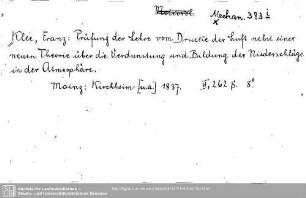 Mechan. 383 i
Klee, Franz: Prüfung der Lehre vom Drucke der Luft nebst einer
neuen Theorie über die Verdunstung und Bildung der Niederschläge
in der Atmosphäre.
Mainz: Kirchheim [u.a.] 1837. VI, 262 S. 8°
Sächsische Landesbibliothek -
Staats- und Universitätsbibliothek Dresden